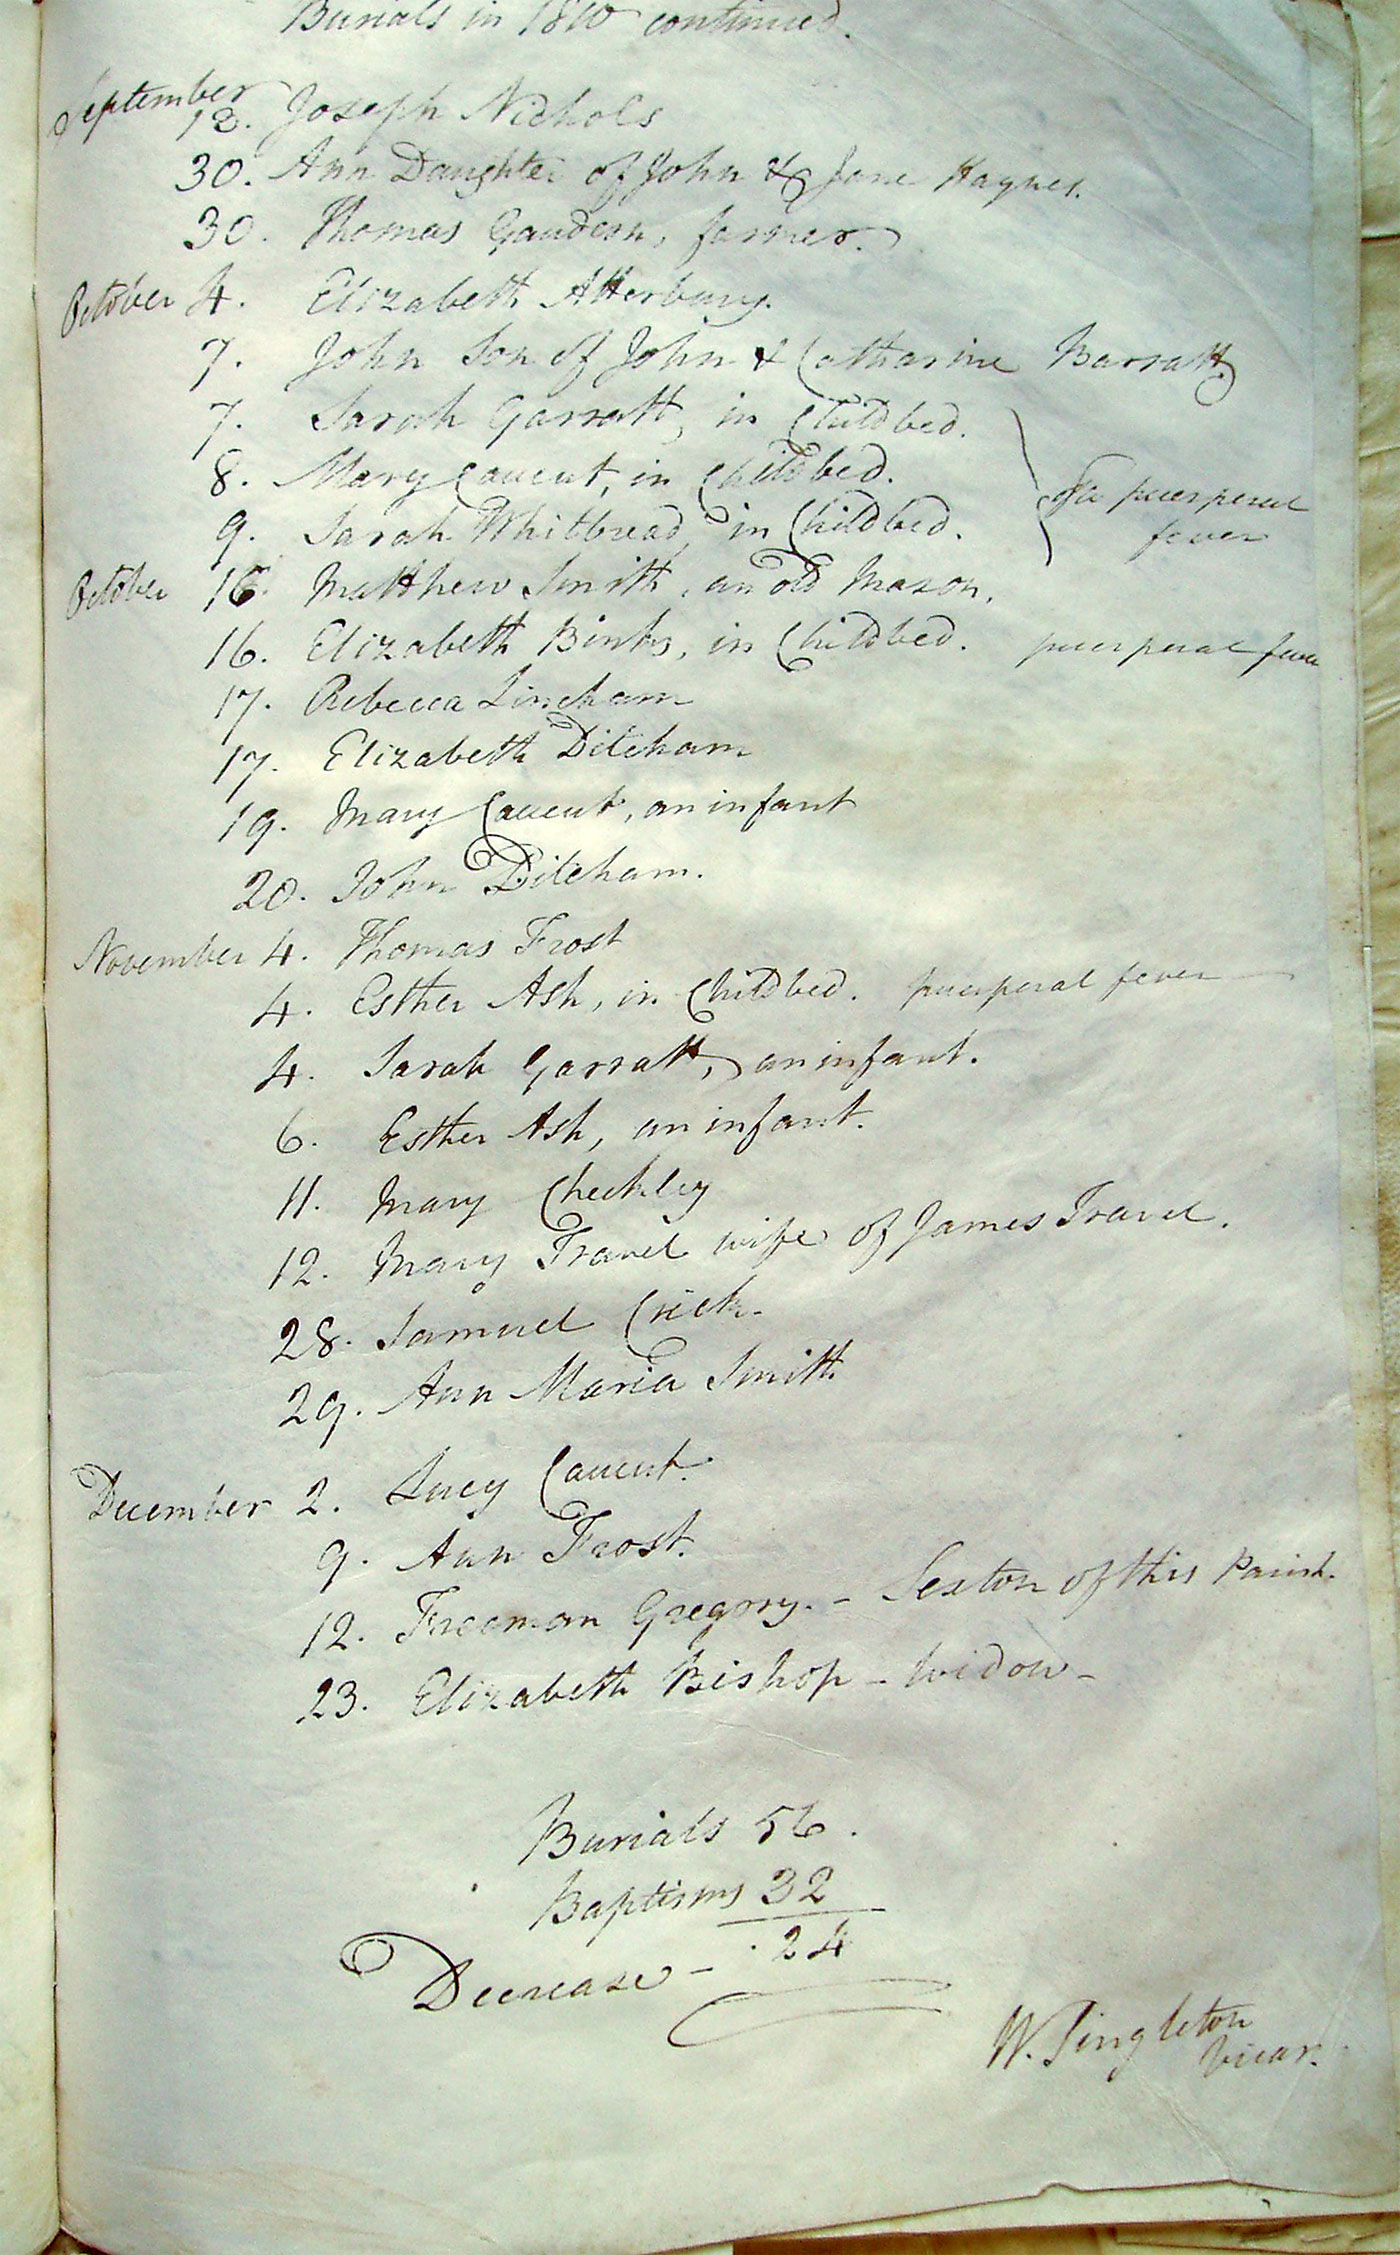 Burials in 1810 continued.
September
12. Joseph Nichols
30. Ann Daughter of John & Jane Haynes.
30. Thomas Gaudern, farmer.
October 4. Elizabeth Atterbury.
7. John Son of John & Catharine Barratt.
7. Sarah Garratt, in Childbed.
8. Mary Cauent, in Childbed.
9. Sarah Whitbread, in Childbed.
puerperal
fever
October 16. Matthew Smith, an old Mason.
16. Elizabeth Binks, in Childbed. puerperal fever
17. Rebecca Lineham
17. Elizabeth Ditcham
19. Mary Cauent, an infant
20. John Ditcham.
November 4. Thomas Frost
4. Esther Ash, in Childbed. puerperal fever
4. Sarah Garratt, an infant.
6. Esther Ash, an infant.
11. Mary Checkley
12. Mary Travel wife of James Travel.
28. Samuel Crick.
29. Ann Maria Smith
December 2. Lucy Cauent.
9. Ann Frost.
12. Freeman Gregory. - Sexton of this Parish.
23. Elizabeth Bishop - Widow -
Burials 56.
Baptisms 32
Decrease - 24
W. Singleton
Vicar.